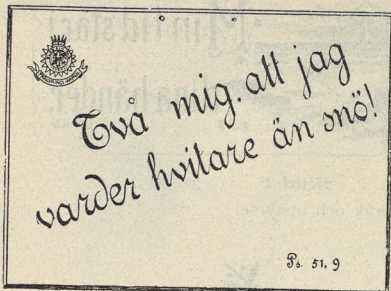 Två mig. att jag
varder hvitare än snö!
Ps. 51, 9